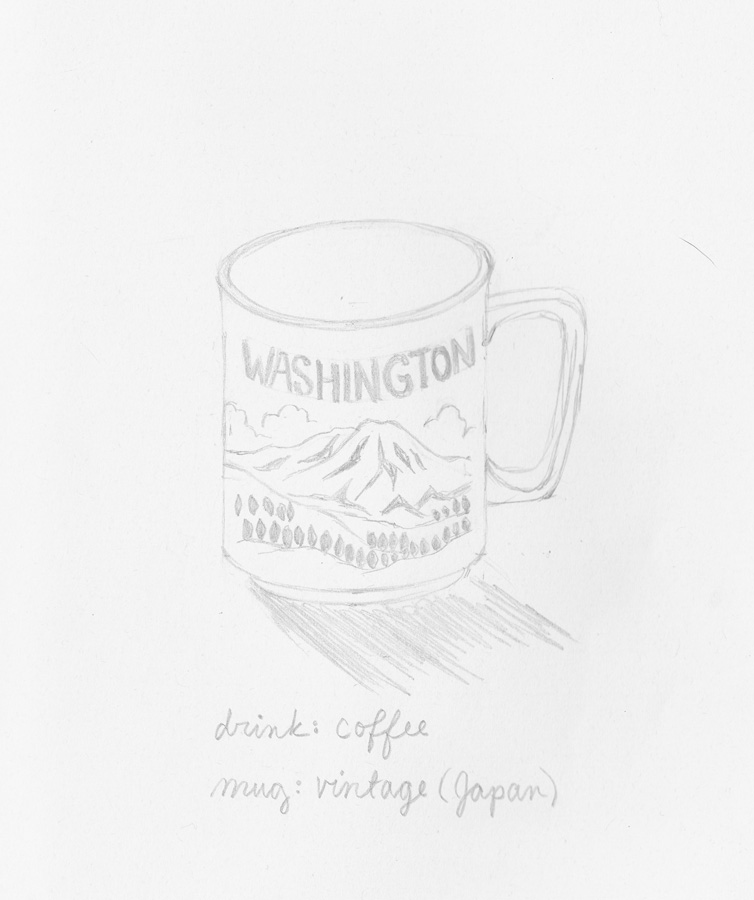 WASHINGTON
drink: coffee
mug: vintage (Japan)